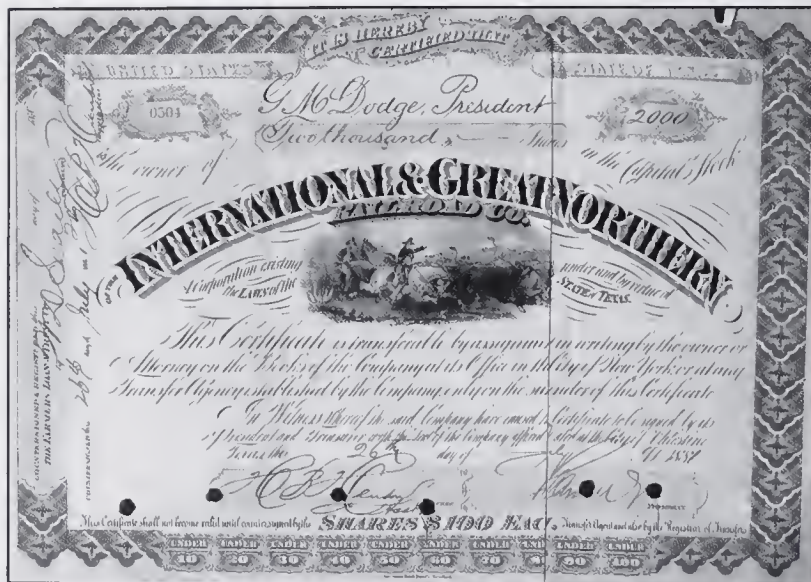 IT IS HEREBY
CERTIFIED THAT
UNITED STATES
0504
G M Dodge, President
2000
Two thousand Shares
is the owner of
in the Capital Stock
OF THE INTERNATIONAL & GREAT NORTHERN
RAILROAD CO.
A Corporation existing
under and by virtue of
the LAWS of the
STATE of TEXAS.
This Certificate is transferable by assignment in writing by the owner or
Attorney on the Books of the Company at its Office in the City of New York or at any
Transfer Agency established by the Company, only on the surrender of this Certificate
In Witness Whereof the said Company have caused this Certificate to be signed by its
President and Treasurer with the Seal of the Company affixed at the City of Palestine
Texas this 26th day of July
This Certificate shall not become valid until countersigned by the
SHARES $100 EACH.
Transfer Agent and also by the Registrar of Transfers
COUNTERSIGNED & REGISTERED this
THE FARMERS LOAN
26th July
COUNTERSIGNED this
UNDER UNDER UNDER UNDER UNDER UNDER UNDER UNDER UNDER UNDER
10 20 30 40 50 60 70 80 90 100